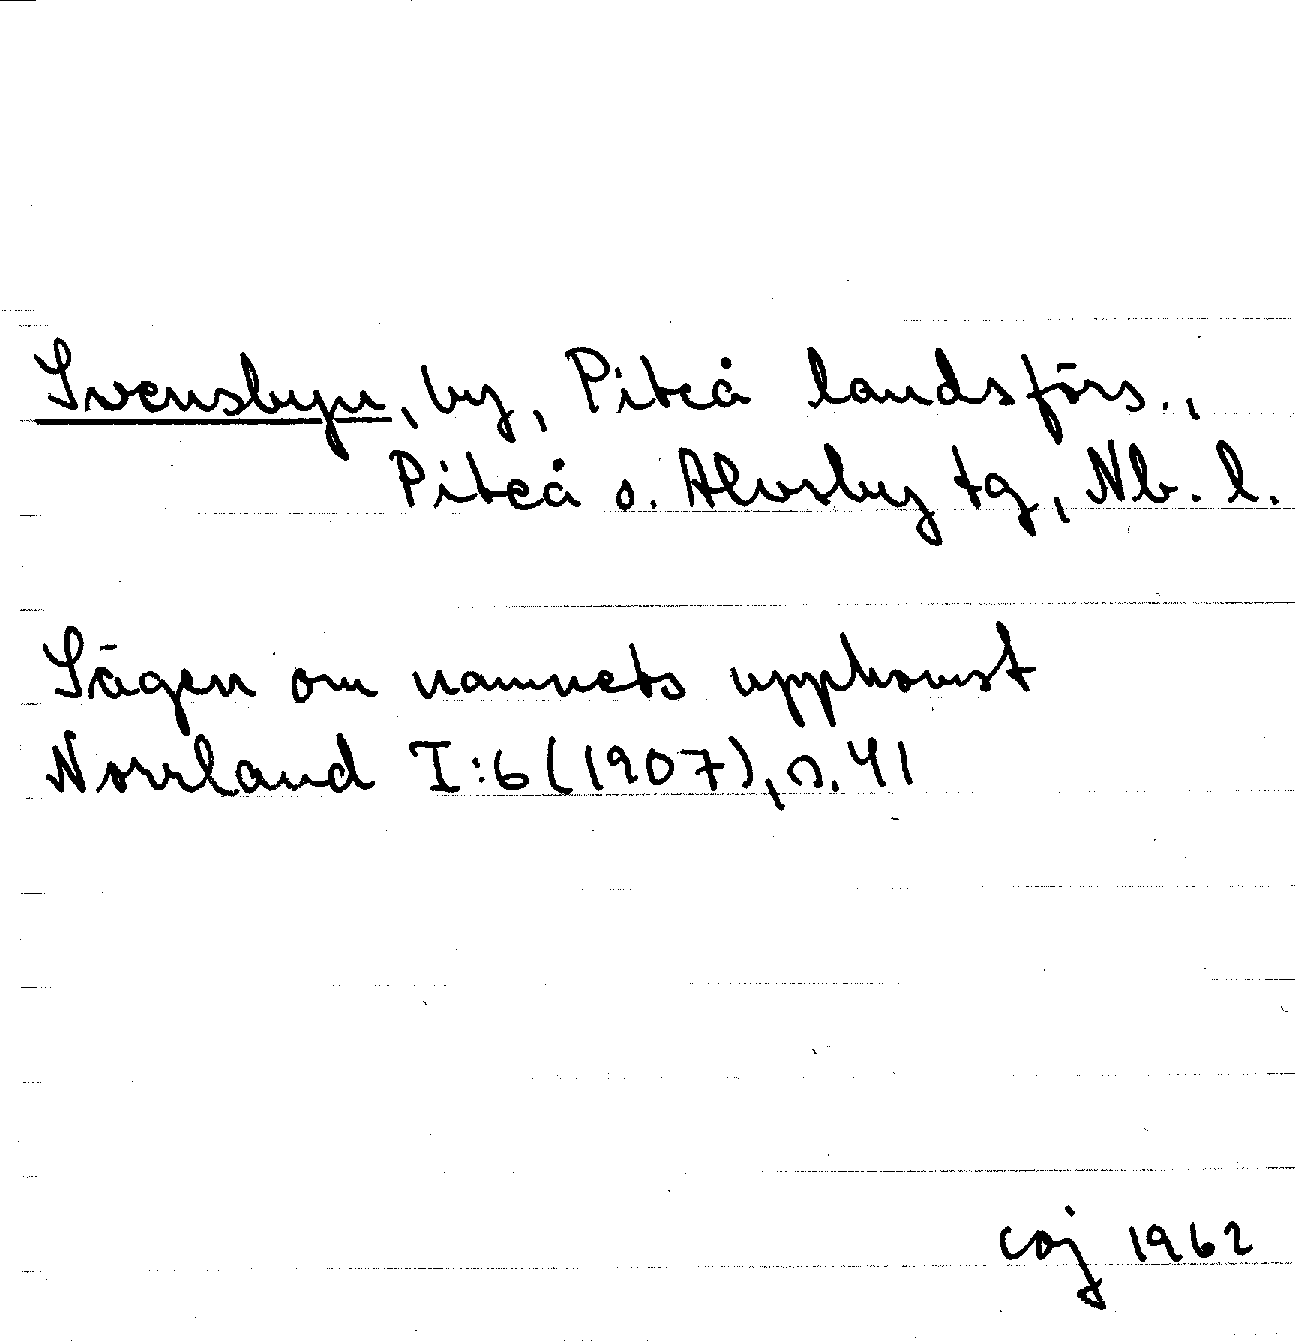 Svensbyn, by, Piteå landsförs.,
Piteå o. Älvsby tg, Nb. l.
Sägen om namnets uppkomst
Norrland I:6 (1907), s. 41
coj 1962